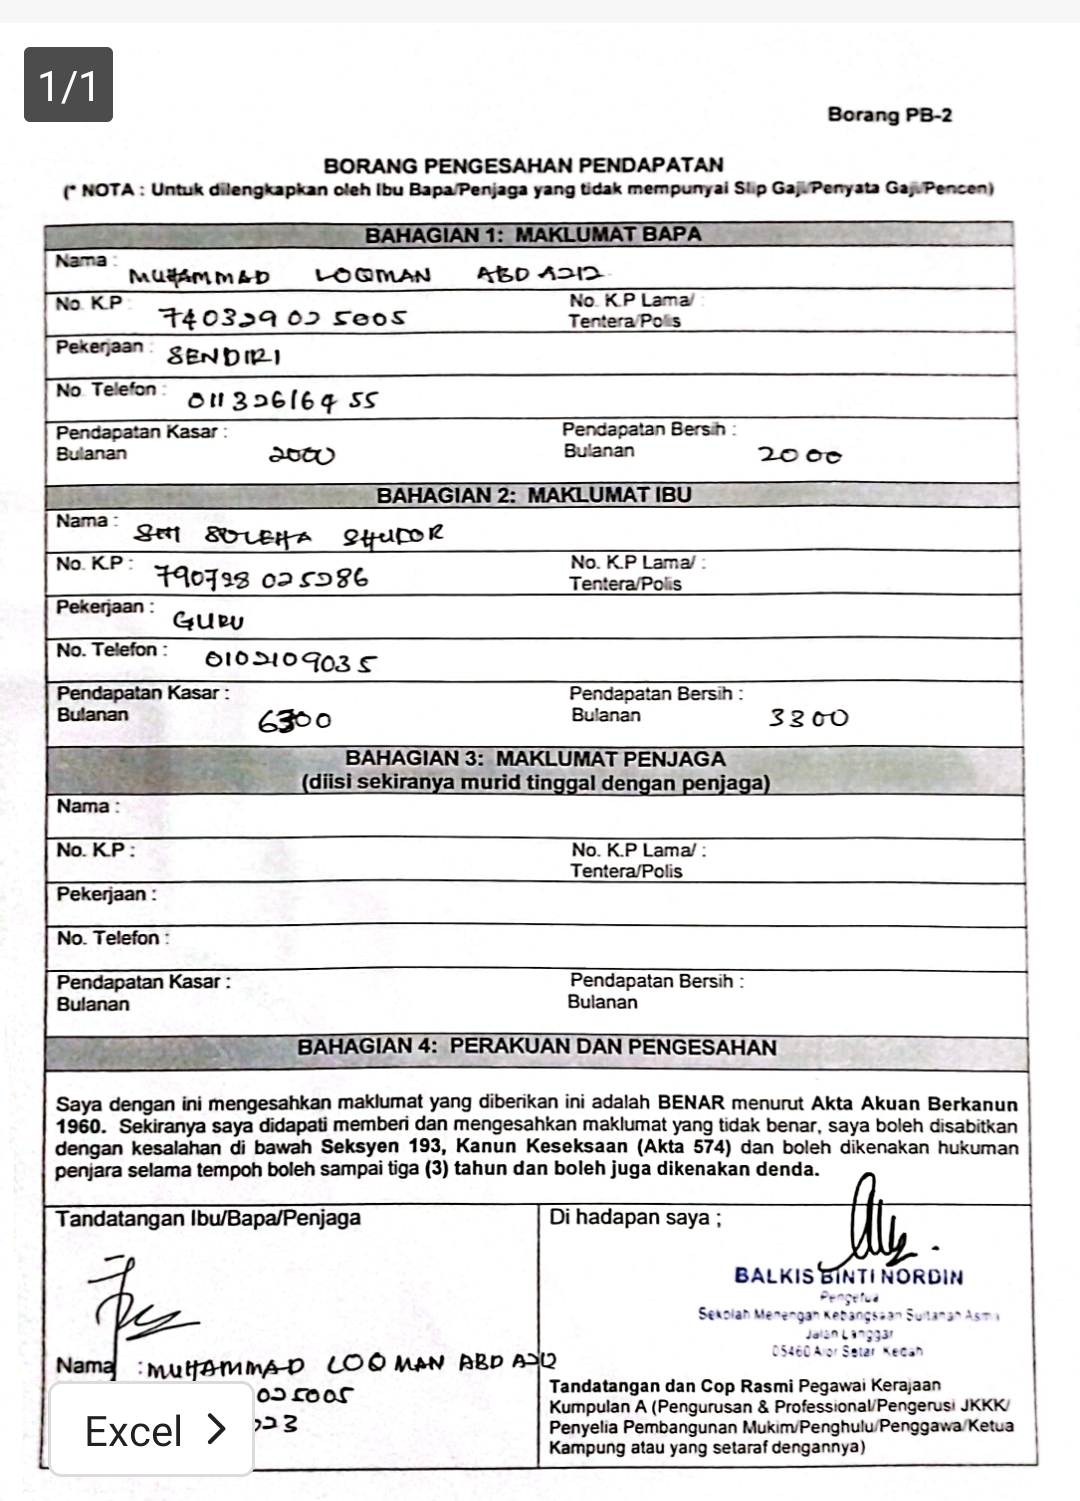 1/1
Borang PB-2
BORANG PENGESAHAN PENDAPATAN
(* NOTA : Untuk dilengkapkan oleh Ibu Bapa/Penjaga yang tidak mempunyai Slip Gaji/Penyata Gaji/Pencen)
BAHAGIAN 1: MAKLUMAT BAPA
Nama : MUHAMMAD LOQMAN ABD AZIZ
No. K.P : 740329 02 5005 No. K.P Lama/ :
Tentera/Polis
Pekerjaan : SENDIRI
No. Telefon : 011 326164 55
Pendapatan Kasar : Pendapatan Bersih :
Bulanan 2000 Bulanan 2000
BAHAGIAN 2: MAKLUMAT IBU
Nama : SITI SOLEHA SHUDOR
No. K.P : 790728 025286 No. K.P Lama/ :
Tentera/Polis
Pekerjaan : GURU
No. Telefon : 0102109035
Pendapatan Kasar : Pendapatan Bersih :
Bulanan 6300 Bulanan 3300
BAHAGIAN 3: MAKLUMAT PENJAGA
(diisi sekiranya murid tinggal dengan penjaga)
Nama :
No. K.P : No. K.P Lama/ :
Tentera/Polis
Pekerjaan :
No. Telefon :
Pendapatan Kasar : Pendapatan Bersih :
Bulanan Bulanan
BAHAGIAN 4: PERAKUAN DAN PENGESAHAN
Saya dengan ini mengesahkan maklumat yang diberikan ini adalah BENAR menurut Akta Akuan Berkanun
1960. Sekiranya saya didapati memberi dan mengesahkan maklumat yang tidak benar, saya boleh disabitkan
dengan kesalahan di bawah Seksyen 193, Kanun Keseksaan (Akta 574) dan boleh dikenakan hukuman
penjara selama tempoh boleh sampai tiga (3) tahun dan boleh juga dikenakan denda.
Tandatangan Ibu/Bapa/Penjaga
Nama : MUHAMMAD LOQMAN ABD AZIZ
025005
23
Di hadapan saya ;
BALKIS BINTI NORDIN
Pengetua
Sekolah Menengah Kebangsaan Sultanah Asma
Jalan Langgar
05460 Alor Setar Kedah
Tandatangan dan Cop Rasmi Pegawai Kerajaan
Kumpulan A (Pengurusan & Professional/Pengerusi JKKK/
Penyelia Pembangunan Mukim/Penghulu/Penggawa/Ketua
Kampung atau yang setaraf dengannya)
Excel >